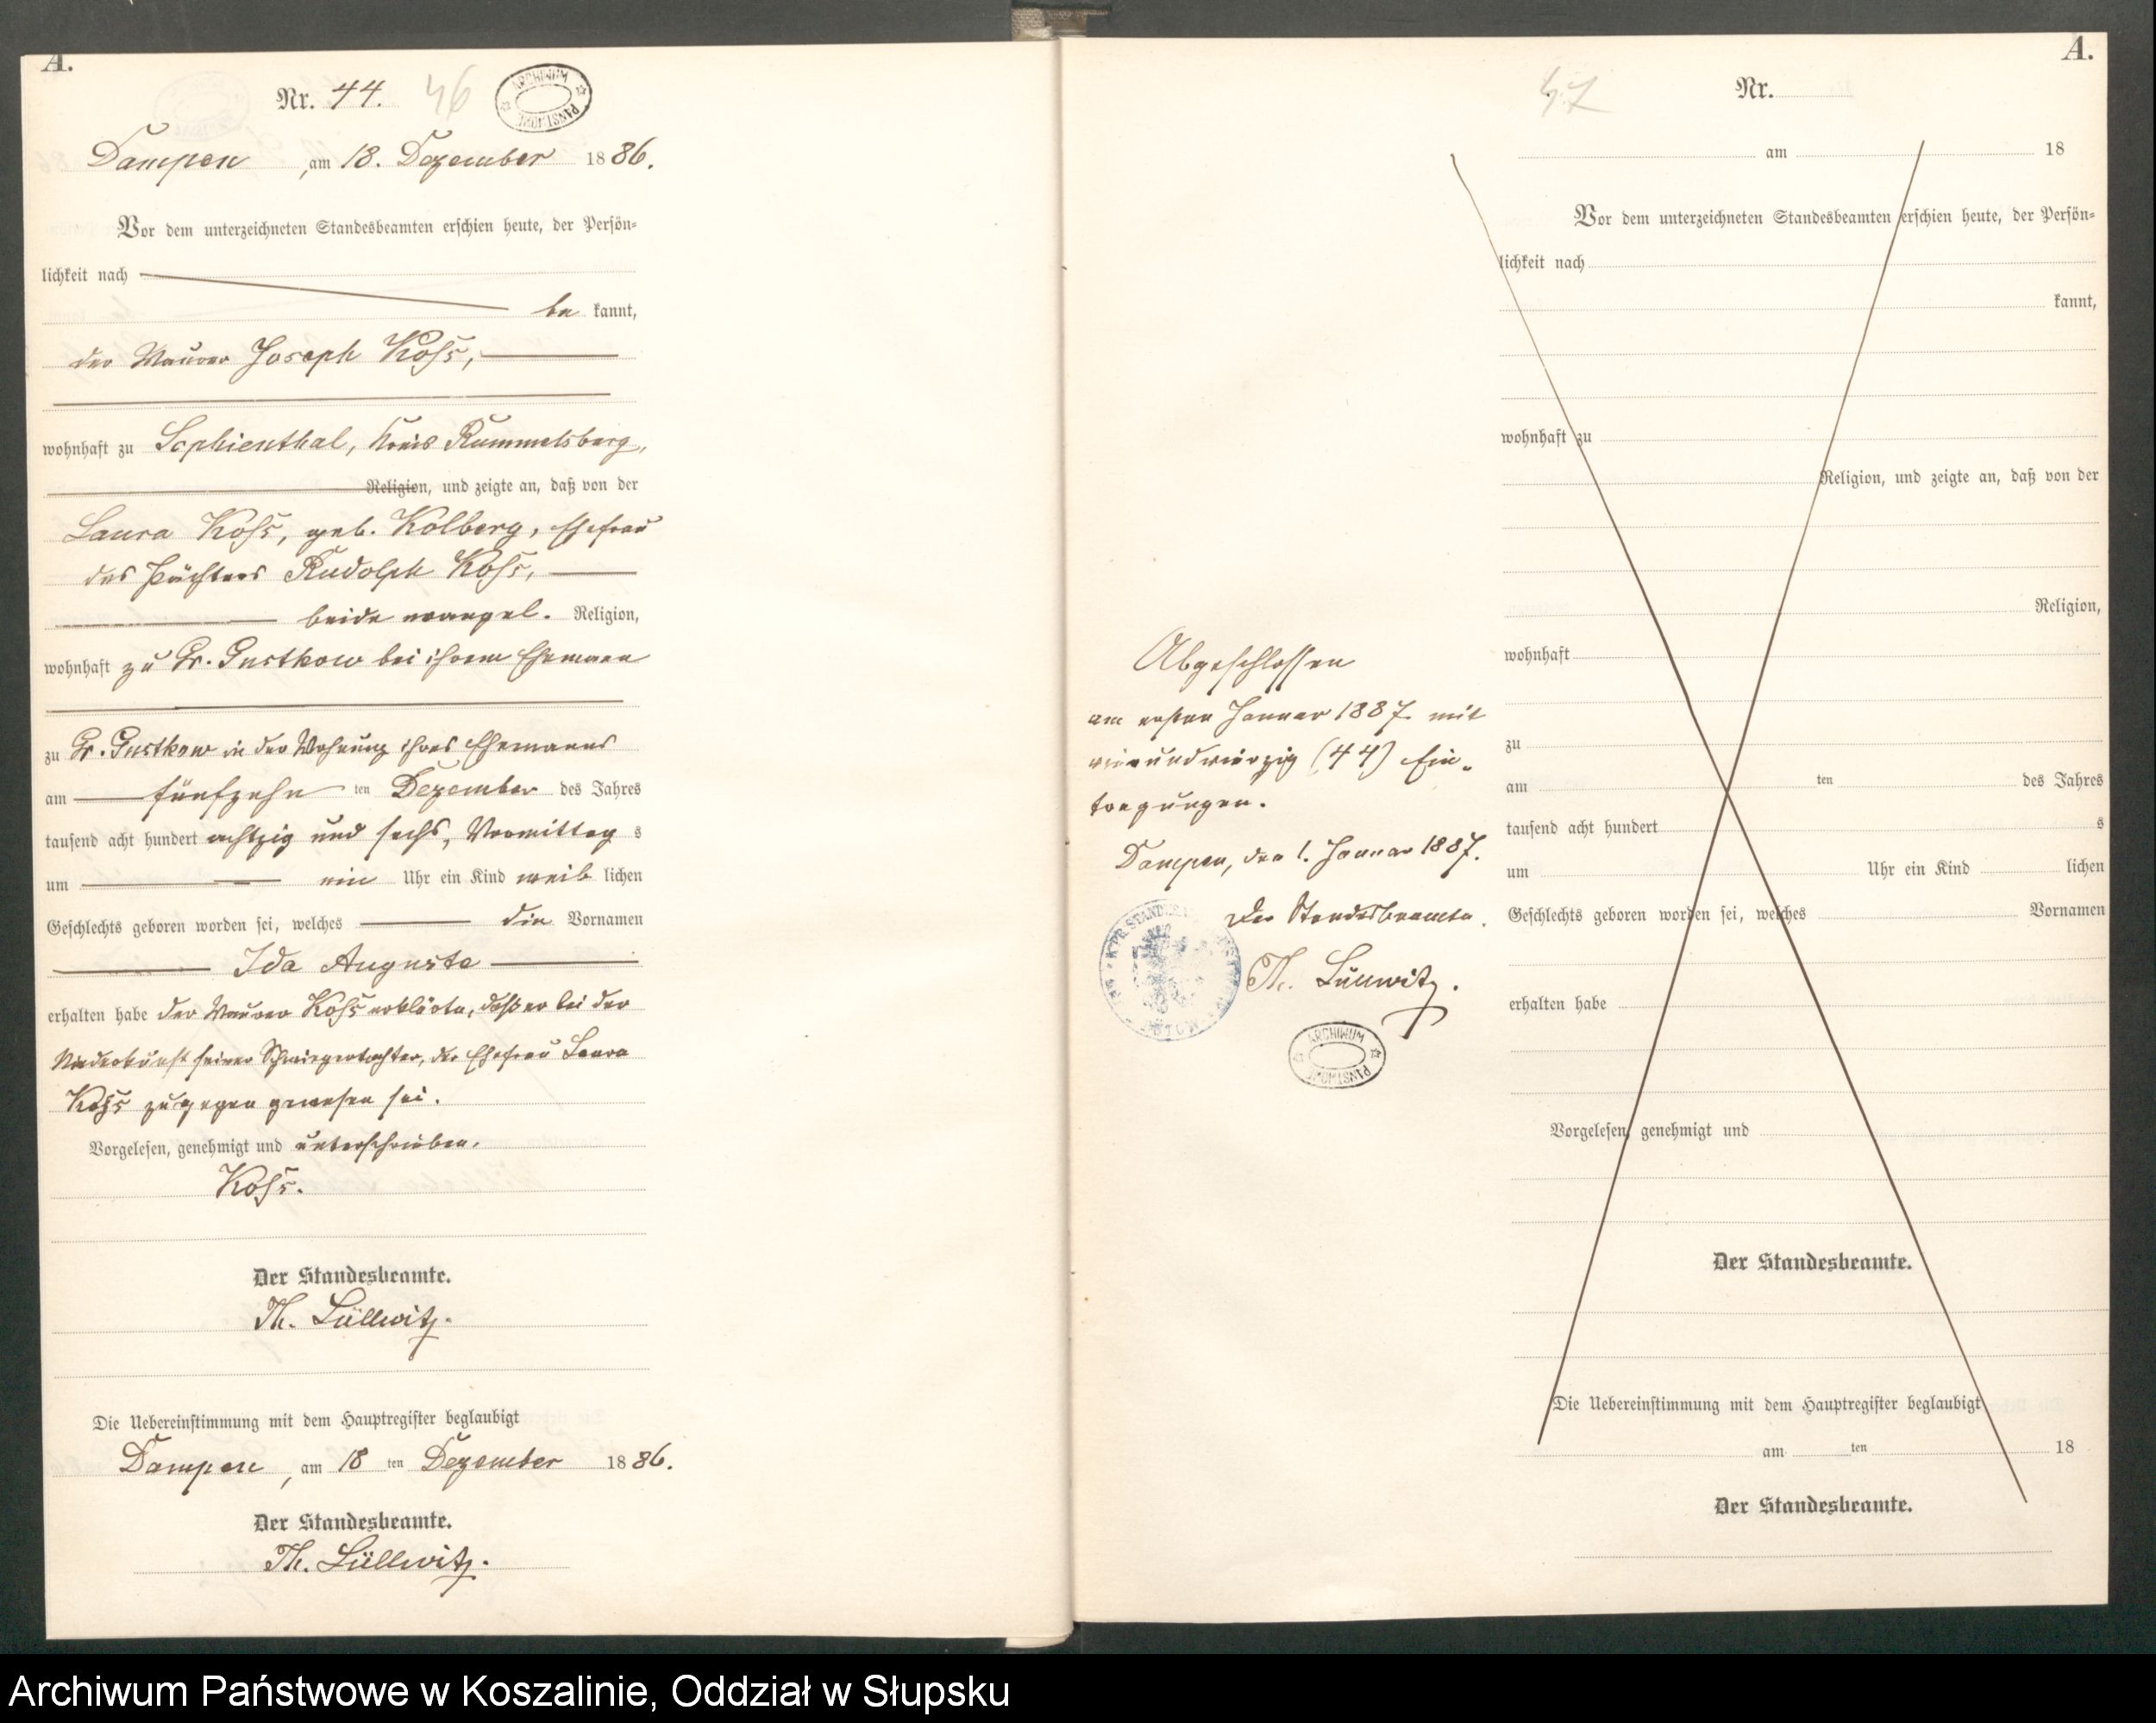 A.
Nr. 44. 46
ARCHIWUM PAŃSTWOWE
Dampen, am 18. Dezember 1886.
Vor dem unterzeichneten Standesbeamten erschien heute, der Persön-
lichkeit nach
be kannt,
der Maurer Joseph Koss,
wohnhaft zu Sophienthal, Kreis Rummelsburg,
Religion, und zeigte an, daß von der
Laura Koss, geb. Kolberg, Ehefrau
des Pächters Rudolph Koss,
beide evangel. Religion,
wohnhaft zu Gr. Gustkow bei ihrem Ehemann
zu Gr. Gustkow in der Wohnung ihres Ehemanns
am fünfzehn ten Dezember des Jahres
tausend acht hundert achtzig und sechs, Vormittag s
um ein Uhr ein Kind weib lichen
Geschlechts geboren worden sei, welches die Vornamen
Ida Auguste
erhalten habe der Maurer Koss erklärte, daß er bei der
Niederkunft seiner Schwiegertochter, der Ehefrau Laura
Koss zugegen gewesen sei.
Vorgelesen, genehmigt und unterschrieben.
Koss.
Der Standesbeamte.
Th. Lüllwitz.
Die Uebereinstimmung mit dem Hauptregister beglaubigt
Dampen, am 18 ten Dezember 1886.
Der Standesbeamte.
Th. Lüllwitz.
Abgeschlossen
am ersten Januar 1887 mit
vierundvierzig (44) Ein-
tragungen.
Dampen, den 1. Januar 1887.
Der Standesbeamte.
Th. Lüllwitz.
ARCHIWUM PAŃSTWOWE
A.
47 Nr.
am 18
Vor dem unterzeichneten Standesbeamten erschien heute, der Persön-
lichkeit nach
kannt,
wohnhaft zu
Religion, und zeigte an, daß von der
Religion,
wohnhaft
zu
am ten des Jahres
tausend acht hundert s
um Uhr ein Kind lichen
Geschlechts geboren worden sei, welches Vornamen
erhalten habe
Vorgelesen, genehmigt und
Der Standesbeamte.
Die Uebereinstimmung mit dem Hauptregister beglaubigt
am ten 18
Der Standesbeamte.
Archiwum Państwowe w Koszalinie, Oddział w Słupsku